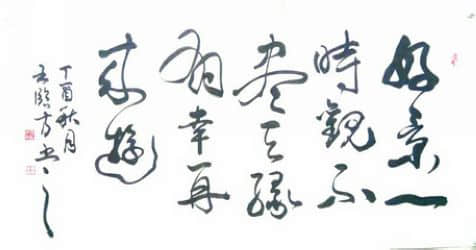 好景一
時觀不
盡天緣
有幸再
來遊
丁酉秋月